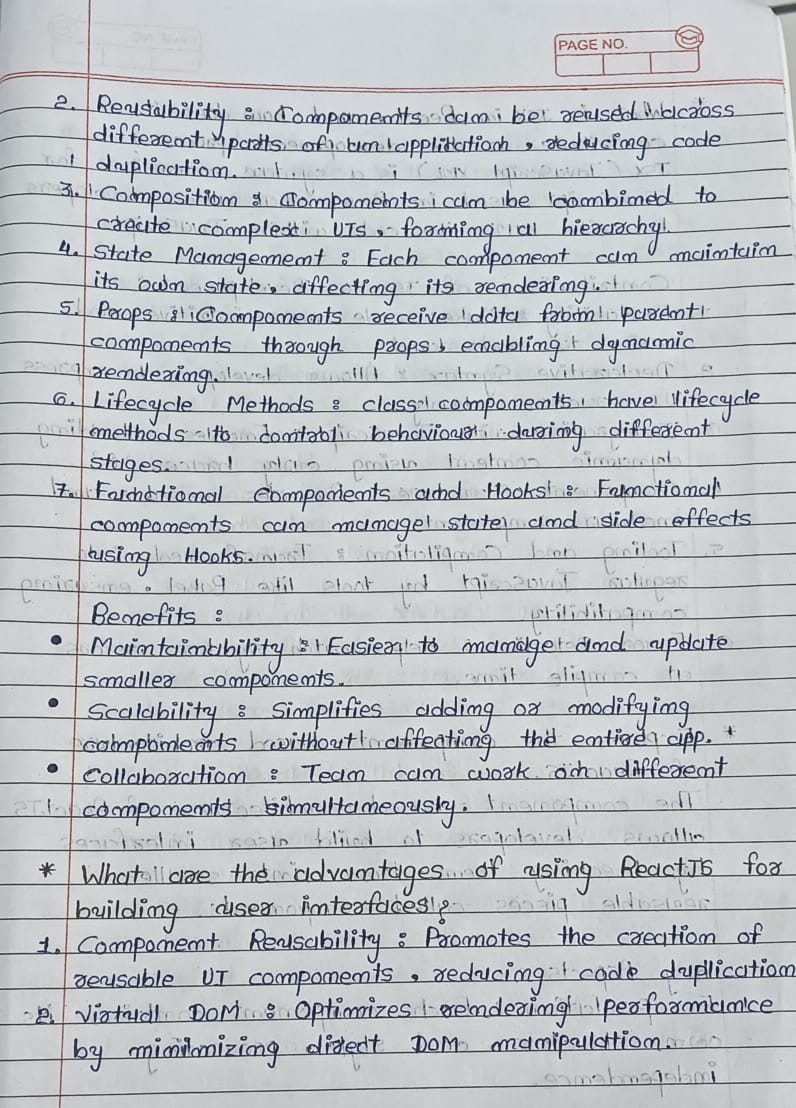 PAGE NO.
2. Reusability : Components can be reused across
different parts of an application, reducing code
duplication.
3. Composition : Components can be combined to
create complex UIs, forming a hierarchy.
4. State Management : Each component can maintain
its own state, affecting its rendering.
5. Props : Components receive data from parent
components through props, enabling dynamic
rendering.
6. Lifecycle Methods : class components have lifecycle
methods to control behaviour during different
stages.
7. Functional Components and Hooks : Functional
components can manage state and side effects
using Hooks.
Benefits :
• Maintainability : Easier to manage and update
smaller components.
• Scalability : Simplifies adding or modifying
components without affecting the entire app. *
• Collaboration : Team can work on different
components simultaneously.
* What are the advantages of using ReactJS for
building user interfaces?
1. Component Reusability : Promotes the creation of
reusable UI components, reducing code duplication
2. Virtual DOM : Optimizes rendering performance
by minimizing direct DOM manipulation.